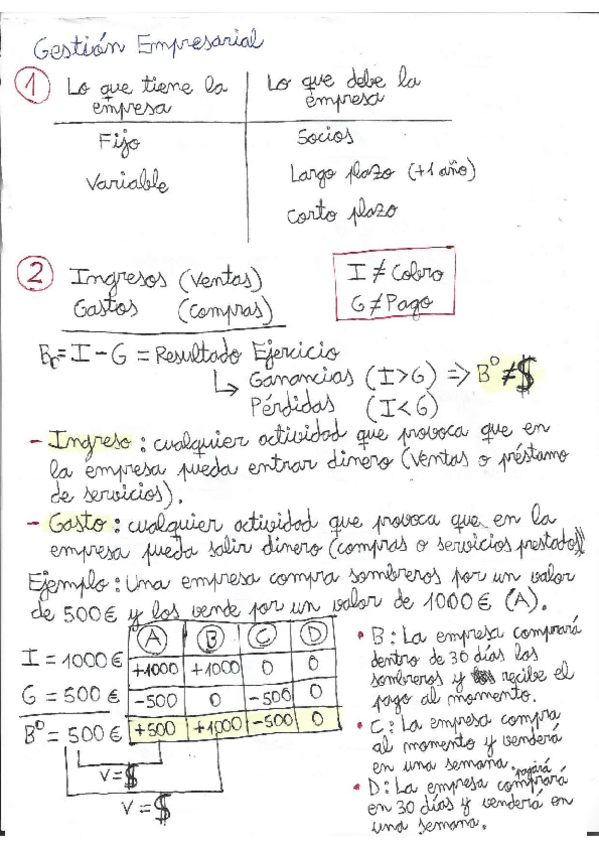 Gestión Empresarial
1 Lo que tiene la empresa | Lo que debe la empresa
Fijo | Socios
Variable | Largo plazo (+1 año)
Corto plazo
2 Ingresos (Ventas)
Gastos (compras)
I ≠ Cobro
G ≠ Pago
Bº = I - G = Resultado Ejercicio
↳ Ganancias (I>G) => Bº ≠ $
Pérdidas (I<G)
- Ingreso: cualquier actividad que provoca que en
la empresa pueda entrar dinero (Ventas o préstamo
de servicios).
- Gasto: cualquier actividad que provoca que en la
empresa pueda salir dinero (compras o servicios prestados)
Ejemplo: Una empresa compra sombreros por un valor
de 500€ y los vende por un valor de 1000€ (A).
A | B | C | D
I = 1000€ | +1000 | +1000 | 0 | 0
G = 500€ | -500 | 0 | -500 | 0
Bº = 500€ | +500 | +1000 | -500 | 0
V = $
V = $
• B: La empresa comprará
dentro de 30 días los
sombreros y recibe el
pago al momento.
• C: La empresa compra
al momento y venderá
en una semana.
• D: La empresa pagará
en 30 días y venderá en
una semana.